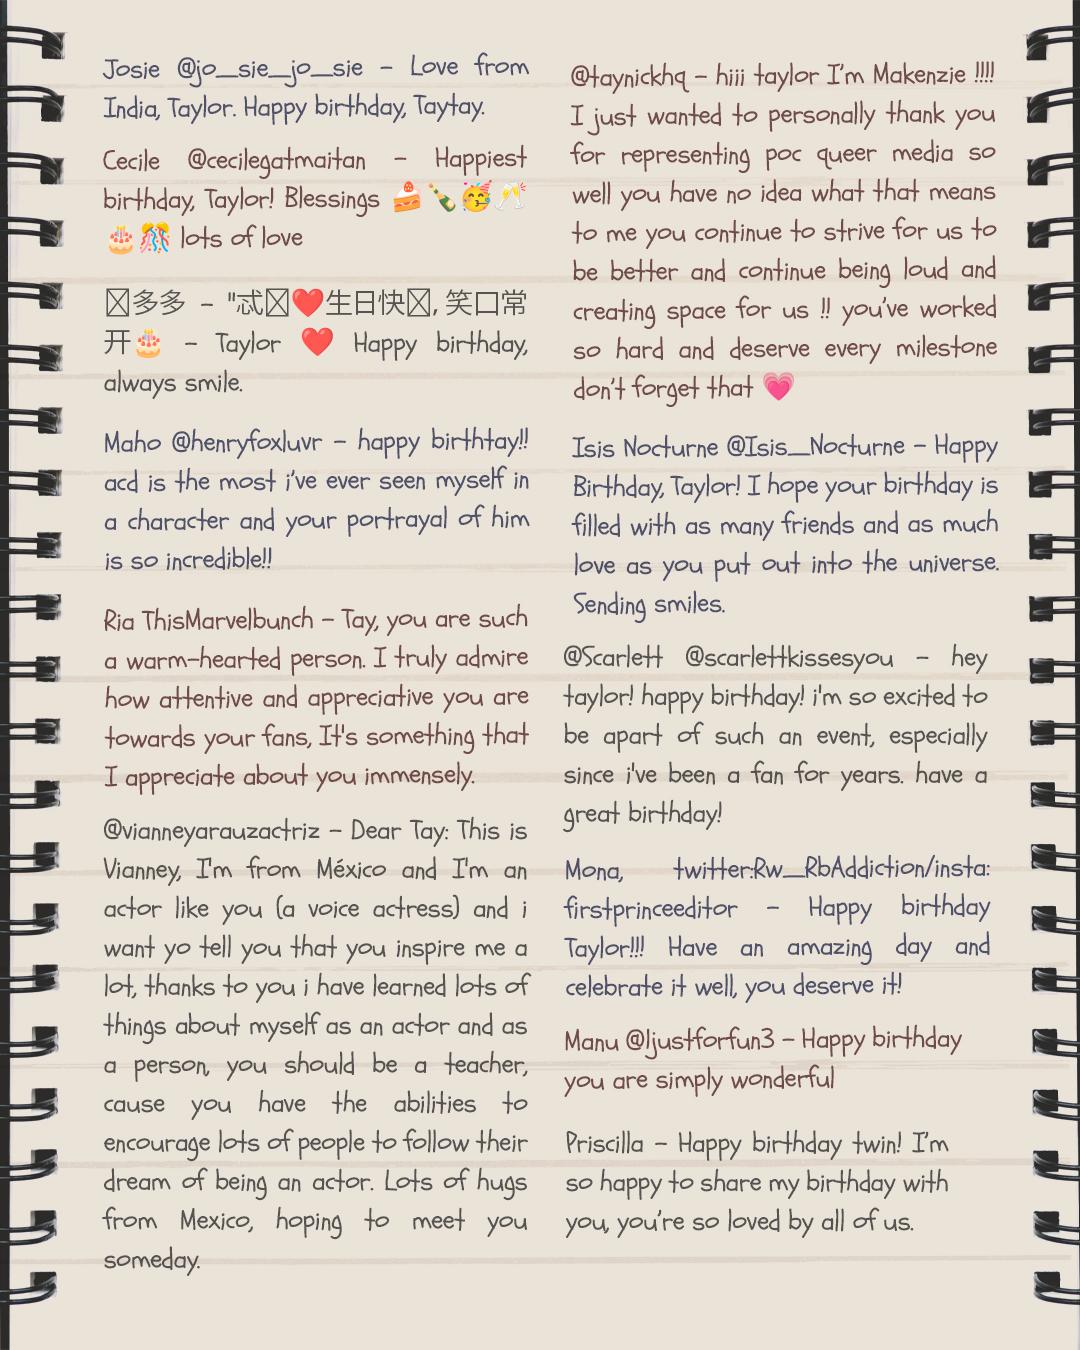 Josie @jo__sie__jo__sie - Love from
India, Taylor. Happy birthday, Taytay.
Cecile @cecilegatmaitan - Happiest
birthday, Taylor! Blessings 🍰🍾🥳🥂
🎂🎊 lots of love
多多 - "忒❤️生日快, 笑口常
开🎂 - Taylor ❤️ Happy birthday,
always smile.
Maho @henryfoxluvr - happy birthtay!!
acd is the most i've ever seen myself in
a character and your portrayal of him
is so incredible!!
Ria ThisMarvelbunch - Tay, you are such
a warm-hearted person. I truly admire
how attentive and appreciative you are
towards your fans, It's something that
I appreciate about you immensely.
@vianneyarauzactriz - Dear Tay: This is
Vianney, I'm from México and I'm an
actor like you (a voice actress) and i
want yo tell you that you inspire me a
lot, thanks to you i have learned lots of
things about myself as an actor and as
a person, you should be a teacher,
cause you have the abilities to
encourage lots of people to follow their
dream of being an actor. Lots of hugs
from Mexico, hoping to meet you
someday.
@taynickhq - hiii taylor I'm Makenzie !!!!
I just wanted to personally thank you
for representing poc queer media so
well you have no idea what that means
to me you continue to strive for us to
be better and continue being loud and
creating space for us !! you've worked
so hard and deserve every milestone
don't forget that 💗
Isis Nocturne @Isis__Nocturne - Happy
Birthday, Taylor! I hope your birthday is
filled with as many friends and as much
love as you put out into the universe.
Sending smiles.
@Scarlett @scarlettkissesyou - hey
taylor! happy birthday! i'm so excited to
be apart of such an event, especially
since i've been a fan for years. have a
great birthday!
Mona, twitter:Rw__RbAddiction/insta:
firstprinceeditor - Happy birthday
Taylor!!! Have an amazing day and
celebrate it well, you deserve it!
Manu @ljustforfun3 - Happy birthday
you are simply wonderful
Priscilla - Happy birthday twin! I'm
so happy to share my birthday with
you, you're so loved by all of us.